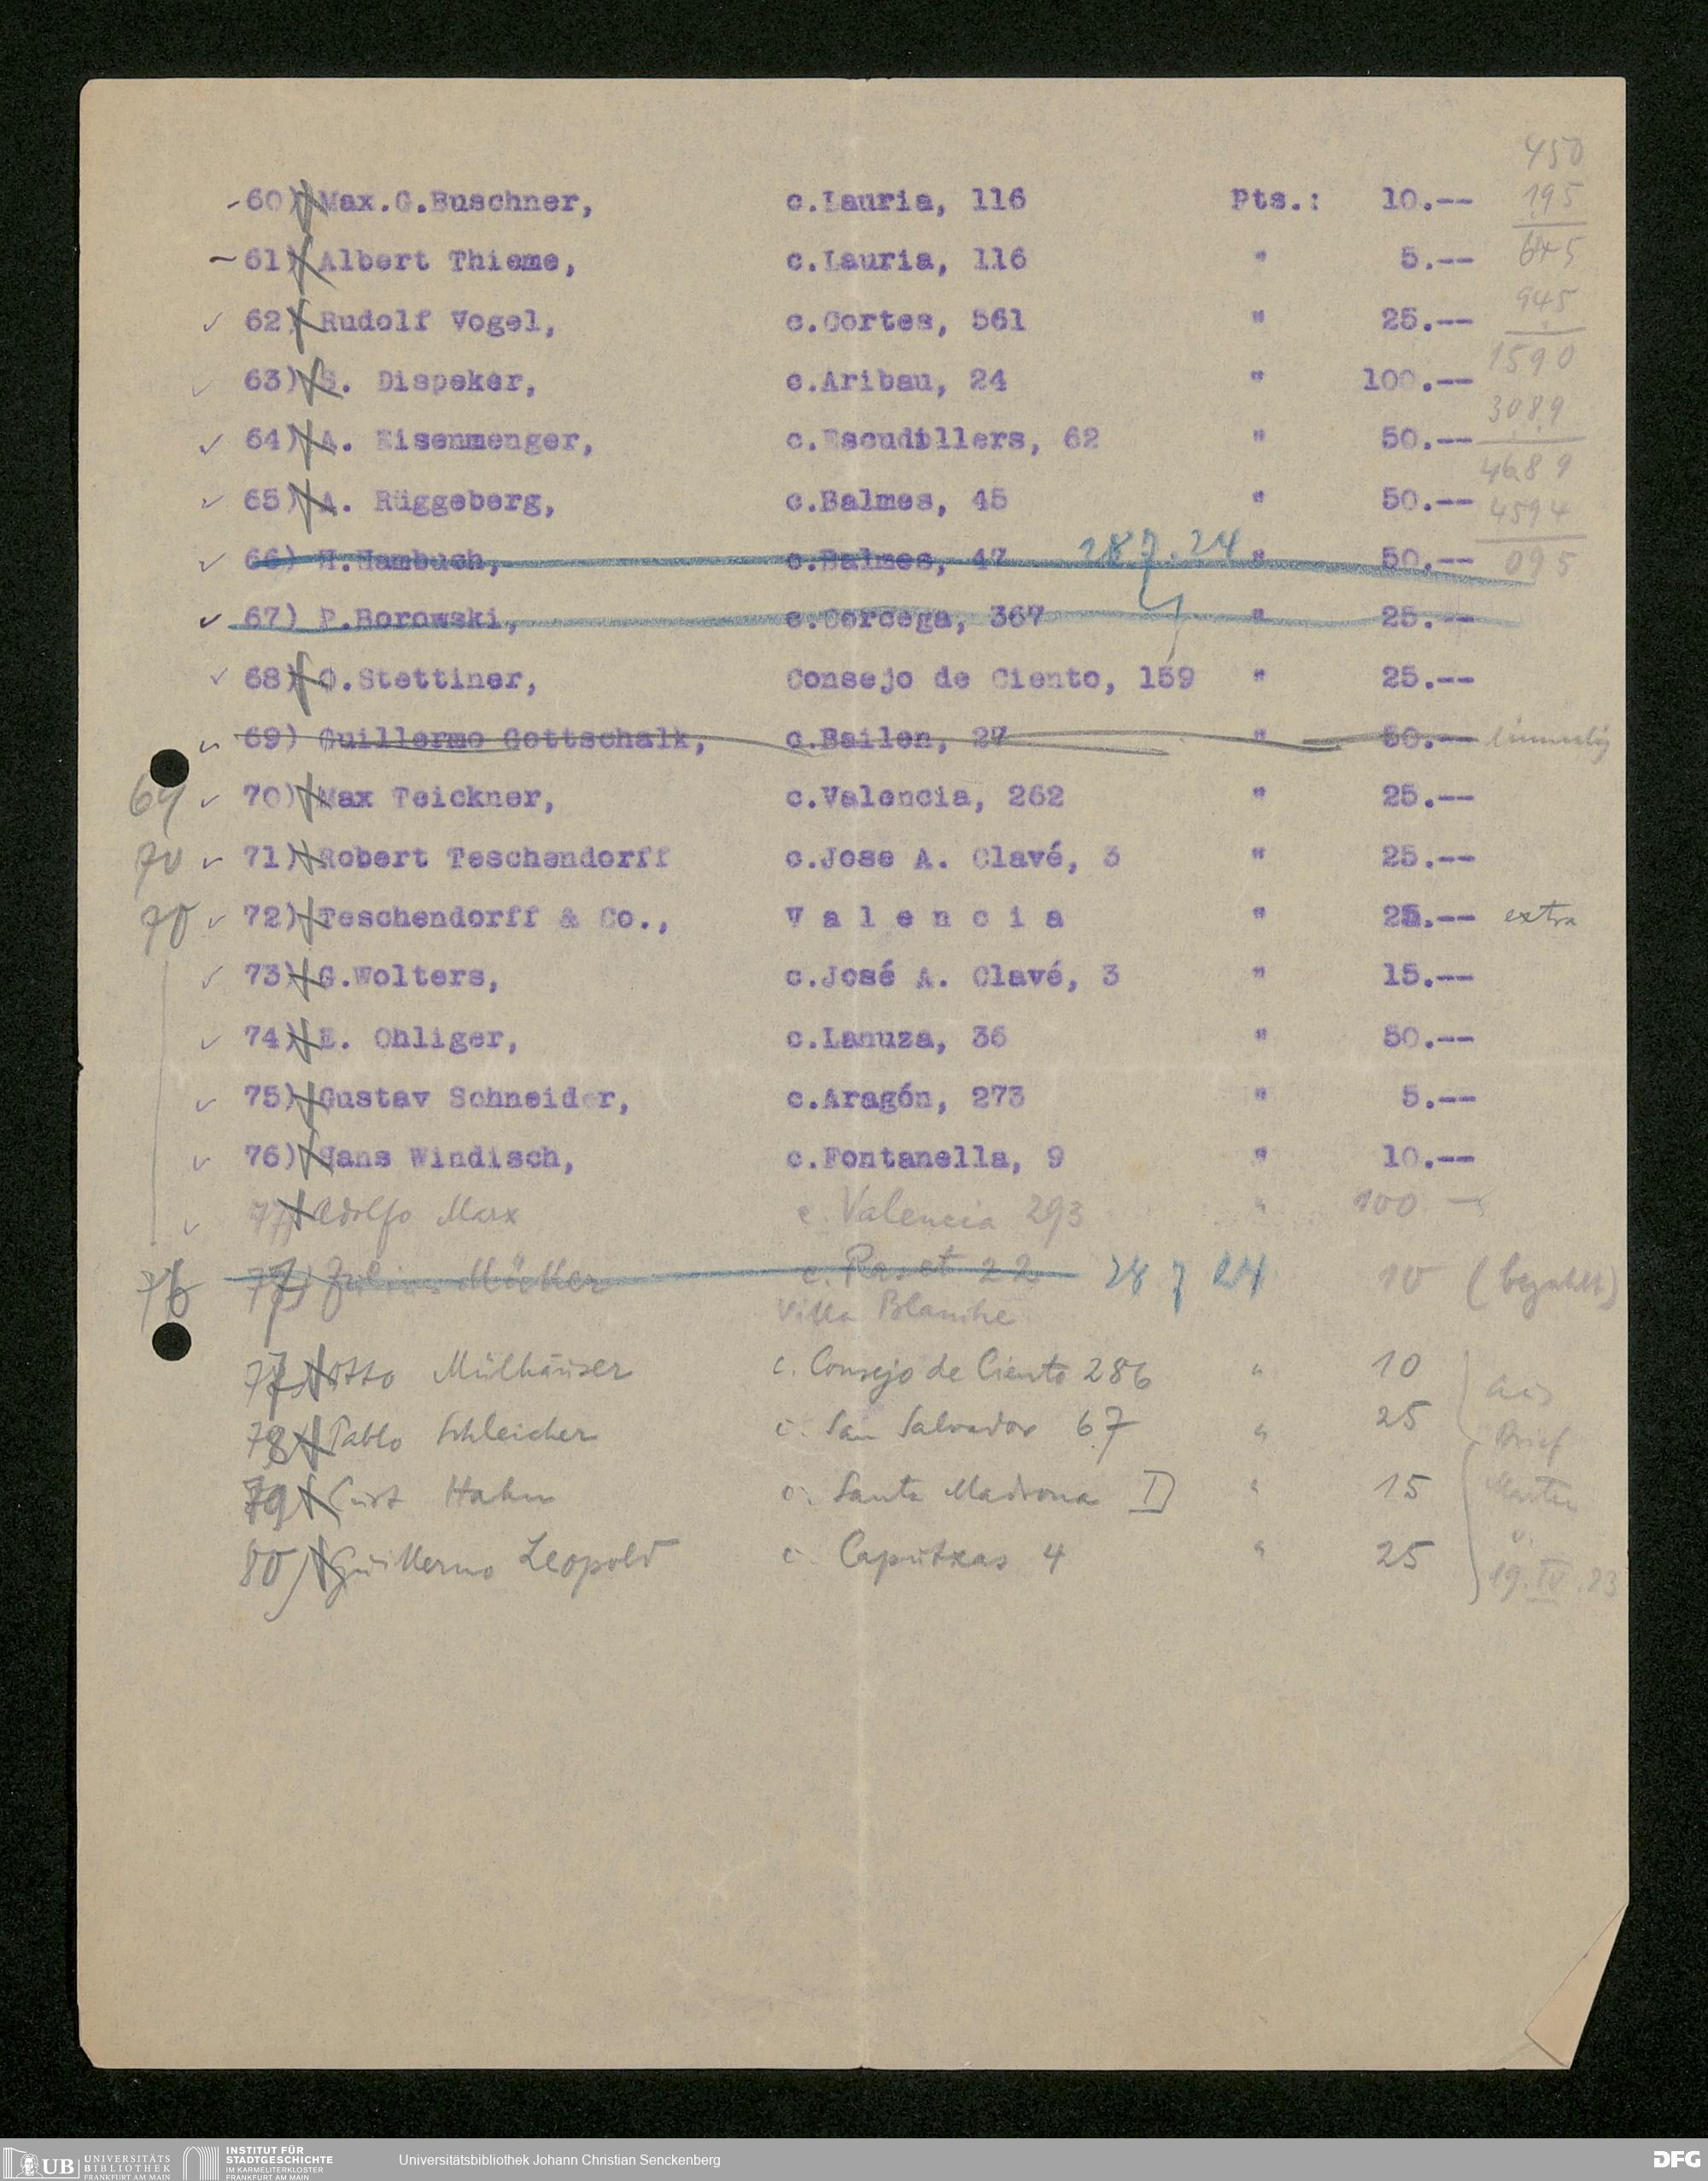 450
60) Max.G.Buschner, c.Lauria, 116 Pts.: 10.-- 195
61) Albert Thieme, c.Lauria, 116 " 5.-- 645
62) Rudolf Vogel, c.Cortes, 561 " 25.-- 945
1590
63) S. Dispeker, c.Aribau, 24 " 100.--
3089
64) A. Eisenmenger, c.Escudillers, 62 " 50.--
4689
65) A. Rüggeberg, c.Balmes, 45 " 50.-- 4594
66) H.Hambuch, c.Balmes, 47 28.7.24 " 50.-- 095
67) P.Borowski, c.Corcega, 367 " 25.--
68) O.Stettiner, Consejo de Ciento, 159 " 25.--
69) Guillermo Gottschalk, c.Bailen, 27 " 50.--
69 70) Max Teickner, c.Valencia, 262 " 25.--
70 71) Robert Teschendorff c.Jose A. Clavé, 3 " 25.--
70 72) Teschendorff & Co., V a l e n c i a " 25.-- extra
73) G.Wolters, c.José A. Clavé, 3 " 15.--
74) E. Ohliger, c.Lanuza, 36 " 50.--
75) Gustav Schneider, c.Aragón, 273 " 5.--
76) Hans Windisch, c.Fontanella, 9 " 10.--
77) Adolfo Marx c. Valencia 293 " 100 —
76 77) Julius Müller c. Raset 22 28 7 24 10 (bezahlt)
Villa Blanche
77) Otto Mülhäuser c. Consejo de Ciento 286 " 10 aus
78) Pablo Schleicher c. San Salvador 67 " 25 Brief
79) Curt Hahn c. Santa Madrona " 15
80) Guillermo Leopold c. Caputxas 4 " 25 19.IV.23
UB UNIVERSITÄTS BIBLIOTHEK FRANKFURT AM MAIN
INSTITUT FÜR STADTGESCHICHTE IM KARMELITERKLOSTER FRANKFURT AM MAIN
Universitätsbibliothek Johann Christian Senckenberg
DFG